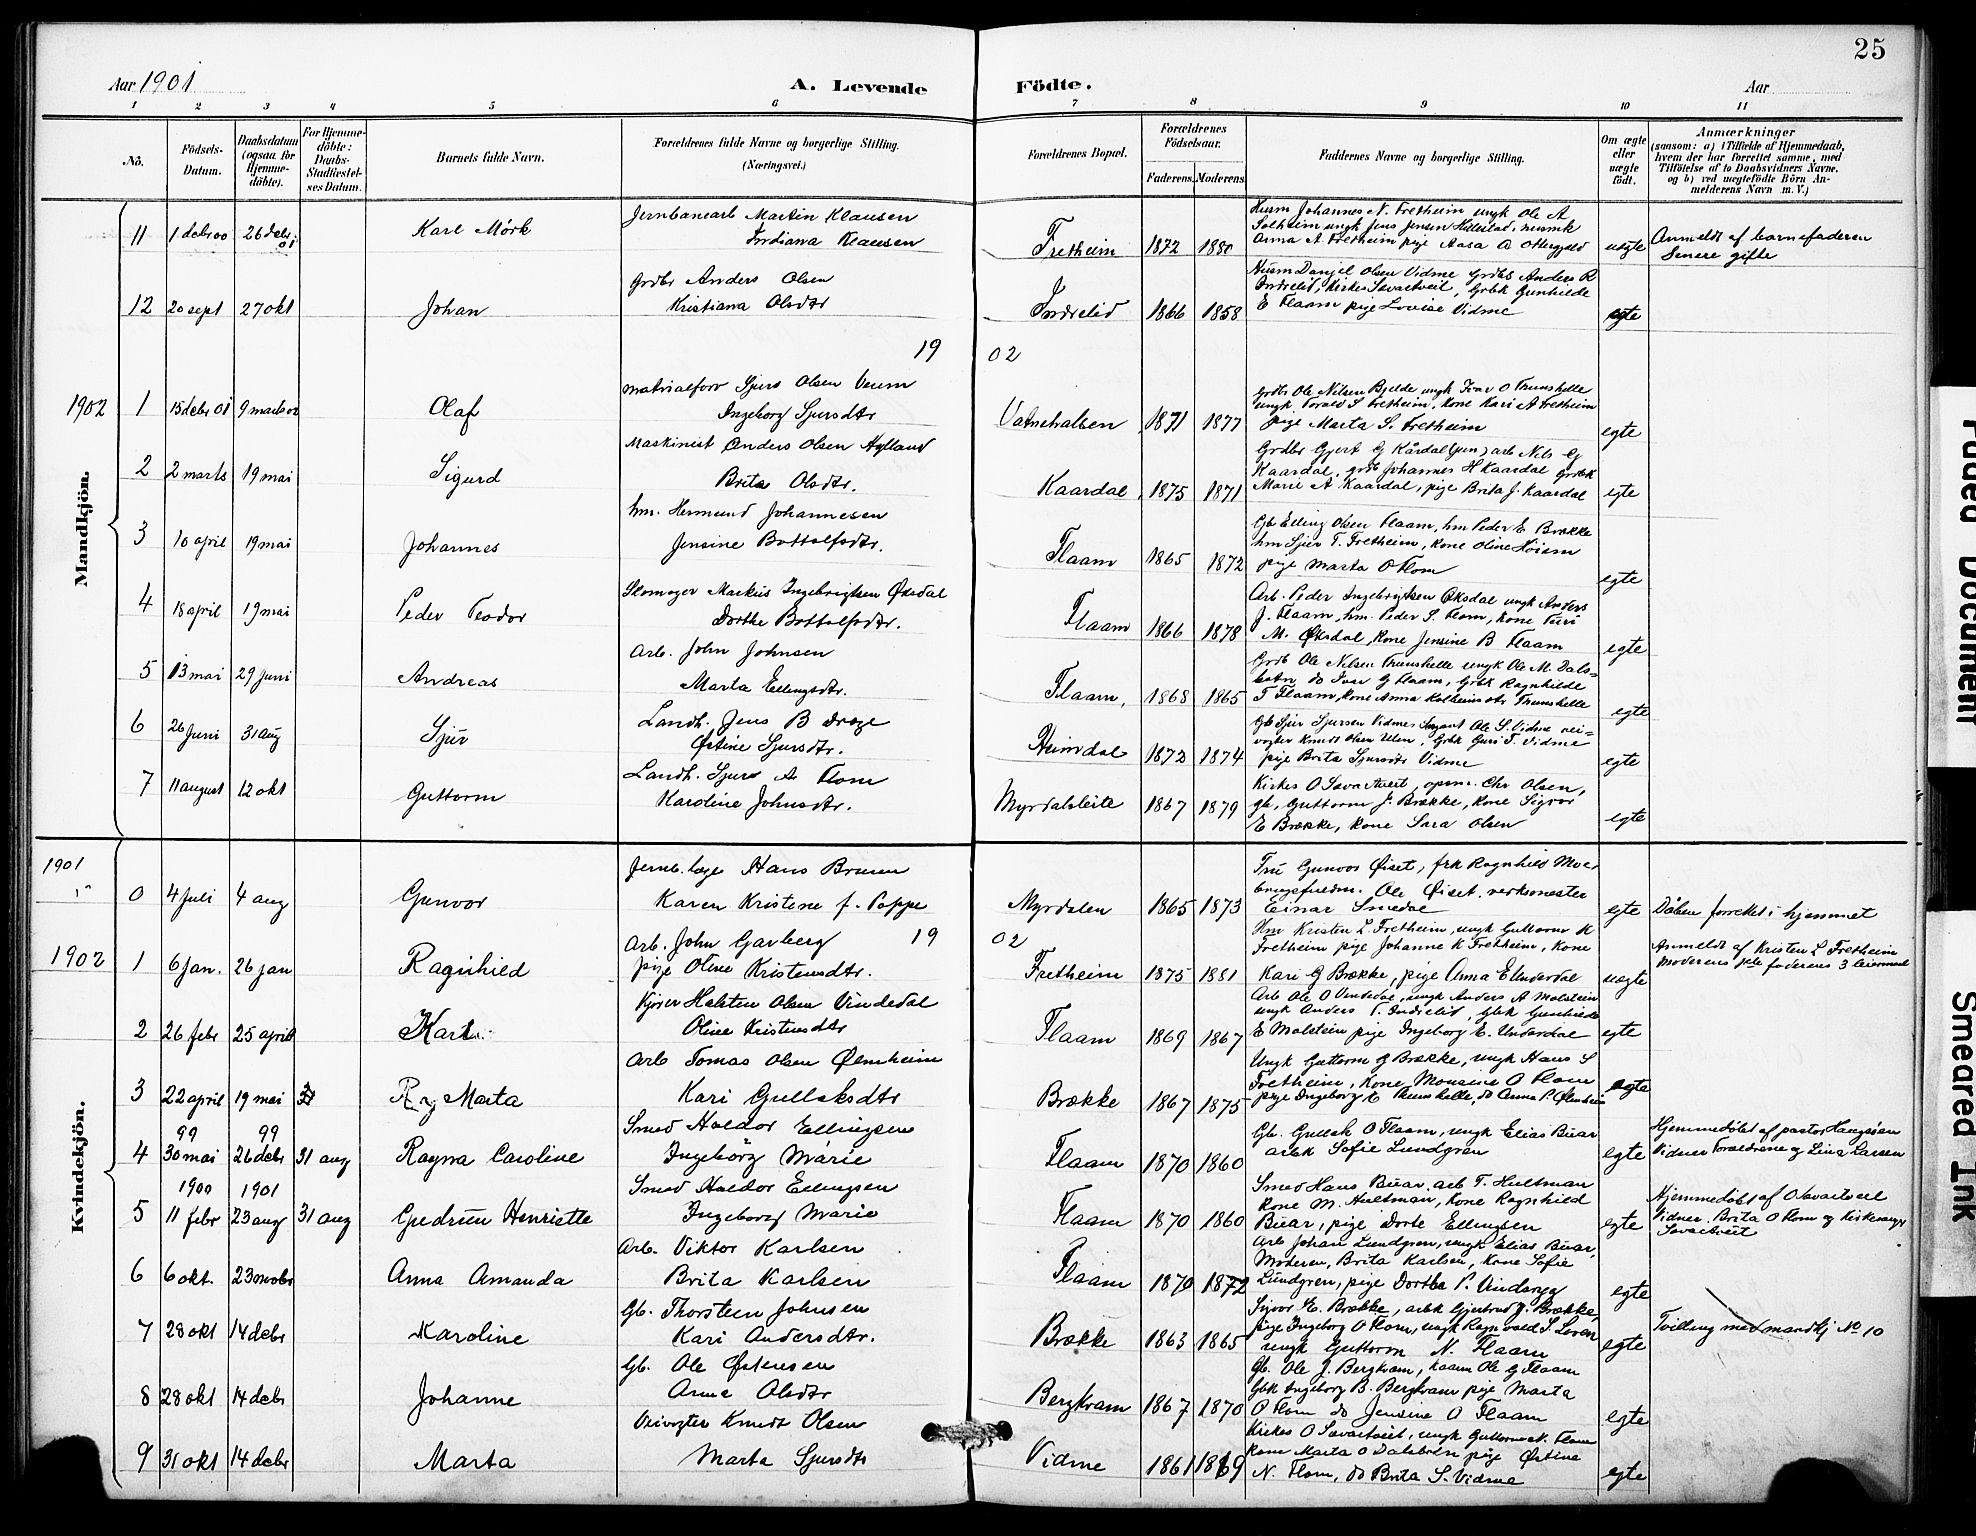 25
Aar 1901
A. Levende
Födte.
Aar
1 2 3 4 5 6 7 8 9 10 11
No.
Födsels-Datum.
Daabsdatum (ogsaa for Hjemme-döbte).
For Hjemme-döbte: Daabs-Stadfæstel-ses Datum.
Barnets fulde Navn.
Forældrenes fulde Navne og borgerlige Stilling. (Næringsvei.)
Forældrenes Bopæl.
Forældrenes Födselsaar.
Faderens. Moderens.
Faddernes Navne og borgerlige Stilling.
Om ægte eller uægte födt.
Anmærkninger
(saasom: a) i Tilfælde af Hjemmedaab,
hvem der har forrettet samme, med
Tilföielse af to Daabsvidners Navne,
og b) ved uægtefödte Börn An-
melderens Navn m. V.)
Mandkjön.
11 1 debr 00 26 debr. 01 Karl Mörk
Jernbanearb Martin Klausen
Indiana Klausen
Fretheim 1872 1880
Husm Johannes N. Fretheim ungk Ole A
Solheim ungk Jens Jensen Hillestad, husmk
Anna A Fretheim pige Aasa O Otterg
uegte
Anmeldt af barnefaderen
Senere gifte
12 20 sept 27 okt Johan
Grdbr Anders Olsen
Kristiana Olsdtr
Indrelid 1866 1858
Husm Danjel Olsen Vidme Grdbr Anders R
Indrelid, Kirkes Savartveit, Grbk Gunhilde
E Flaam pige Lovise Vidme
egte
19 02
1902 1 15 debr 01 9 marts 02 Olaf
Matrialforv Sjurs Olsen Veum
Ingeborg Sjursdtr
Vatnehalsen 1871 1877
Grdbr Ole Nilsen Bjelde ungk Ivar O Trunshelle
ungk Torald S Fretheim, kone Kari A Fretheim
pige Marta S. Fretheim
egte
2 2 marts 19 mai Sigurd
Maskinist Anders Olsen Hylland
Brita Olsdtr.
Kaardal 1875 1871
Grdbr Gjert G Kårdal (jun) arb Nils G
Kaardal, grdb Johannes H Kaardal Grdbk
Marie A Kaardal, pige Brita J. Kaardal
egte
3 10 april 19 mai Johannes
hm. Hermund Johannesen
Jensine Bottolfsdtr.
Flaam 1865 1872
Gb Elling Olsen Flaam, hm Peder E Brække
hm Sjur T. Fretheim, kone Oline Höiem
pige Marta O Flom
egte
4 18 april 19 mai Peder Teodor
Skomager Markus Ingebrigtsen Øksdal
Dorthe Bottolfsdtr.
Flaam 1866 1878
Arb. Peder Ingebrigtsen Øksdal ungk Anders
J. Flaam, hm. Peder S. Flom, kone Turi
M. Øksdal, kone Jensine B Flaam
egte
5 13 mai 29 juni Andreas
Arb. John Johnsen
Marta Ellingsdtr.
Flaam, 1868 1865
Grdb Ole Nilsen Trunshelle ungk Ole M. Dals-
botn do Ivar G Flaam, Grbk Ragnhilde
T Flaam, kone Anna Kolbeinsdtr Trunshelle
egte
6 26 juni 31 aug Sjur
Landh. Jens B Dræge
Østine Sjursdtr.
Heimdal 1872 1874
Gb Sjur Sjursen Vidme, Sergant Ole S. Vidme vei-
vogter Knudt Olsen Ulen, Grbk Guri T. Vidme
pige Brita Sjursdtr Vidme
egte
7 11 august 12 okt Guttorm
Landh. Sjurs A Flom
Karoline Johnsdtr.
Myrdalsleite 1867 1879
Kirkes O Savartveit, opsm. Chr Olsen,
gb, Guttorm J. Brække, kone Sigvor
E Brække, kone Sara Olsen
egte
Kvindekjön.
1901 0 4 juli 4 aug Gunvor
Jernb. læge Hans Bruun
Karen Kristene f. Poppe
Myrdalen 1865 1873
Fru Gunvor Øiset, frk Ragnhild Moe
Ole Øiset. verksmester
Einar Smedal
egte
Dåben forrettet i hjemmet
19 02
1902 1 6 jan. 26 jan Ragnhild
Arb. John Garberg
pige Oline Kristensdtr.
Fretheim 1875 1881
Hm Kristen L Fretheim, ungk Guttorm K
Fretheim pige Johanne K Fretheim, kone
Kari G Brække, pige Anna E Underdal
uegte
Anmeldt af Kristen L Fretheim
Moderens faderens 3 leiermaal
2 26 febr 25 april Kari
Kjörer Halsten Olsen Vindedal
Oline Kristensdtr
Flaam 1869 1867
Arb Ole O Vindedal, ungk Anders A Molstein
ungk Anders T. Indrelid, Gbk Gunhilde
E Molstein pige Ingeborg E. Underdal
egte
3 22 april 19 mai Marta
Arb Tomas Olsen Ølmheim
Kari Gullaksdtr
Brække 1867 1875
Ungk Guttorm G Brække, ungk Hans S
Fretheim, kone Monsine O Flom
pige Ingeborg E Trunshelle, do Anna P. Ølmheim
egte
99 99
4 30 mai 26 debr 31 aug Ragna Caroline
Smed Haldor Ellingsen
Ingebörg Marie
Flaam 1870 1860
Gb. Gullak O Flaam, ungk Elias Buar
arbk Sofie Lundgren
egte
Hjemmedöbt af pastor Haugsöen
Vidner Forældrene og Lina Larsen
1900 1901
5 11 febr 23 aug 31 aug Gudrun Henriette
Smed Haldor Ellingsen
Ingeborg Marie
Flaam 1870 1860
Smed Hans Buar, arb T. Hultman
kone M. Hultman, kone Ragnhild
Buar, pige Dorte Ellingsen
egte
Hjemmedöbt af O Savartveit
Vidner. Brita O Flom og Kirkesanger
Savartveit
6 6 okt. 23 novbr Anna Amanda
Arb. Viktor Karlsen
Brita Karlsen
Flaam 1870 1872
Arb Johan Lundgren, ungk Elias Buar,
Moderen, Brita Karlsen, kone Sofie
Lundgren, pige Dorthe P.
egte
7 28 okt 14 debr Karoline
Gb. Thorsten Johnsen
Kari Andersdtr.
Brække 1863 1865
Sigvor E. Brække, arbk Gjertrud J. Brække,
pige Ingeborg O Flom, ungk Ragnvald S. Loven
ungk Guttorm N. Flaam
egte
Tvilling med mandkj No 10
8 28 okt 14 debr Johanne
Gb. Ole Østensen
Anna Olsdtr
Bergkvam 1867 1870
Gb. Ole J. Bergkvam, kaarm Ole G Flaam
Gbk Ingeborg B. Bergkvam pige Marta
O Flom do Jensine O Flaam
egte
9 31 okt 14 debr Marta
Veivogter Knudt Olsen
Marta Sjursdtr
Vidme 1861 1869
Kirkes O Savartveit, ungk Guttorm N. Flom
kone Marta O Dalsbotn pige Østine
N. Flom, do Brita S. Vidme
egte
Faded Document
Smeared Ink